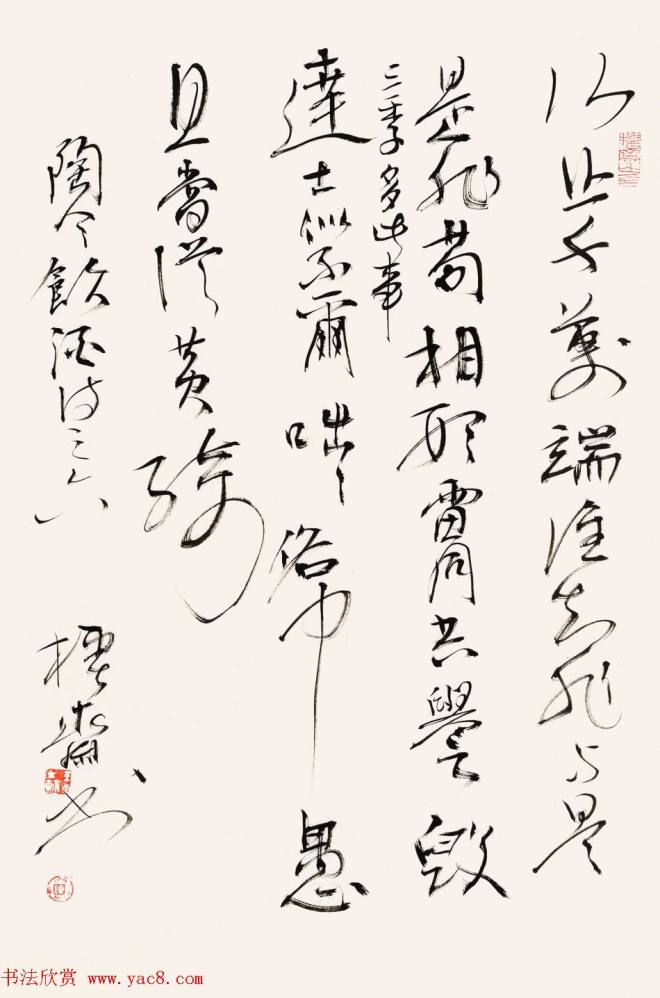 行止千萬端誰知非与是
是非苟相形雷同共譽毀
三季多此事
達士似不爾咄〻俗中愚
且當從黃綺
陶令飲酒詩之六
齋書
书法欣赏 www.yac8.com